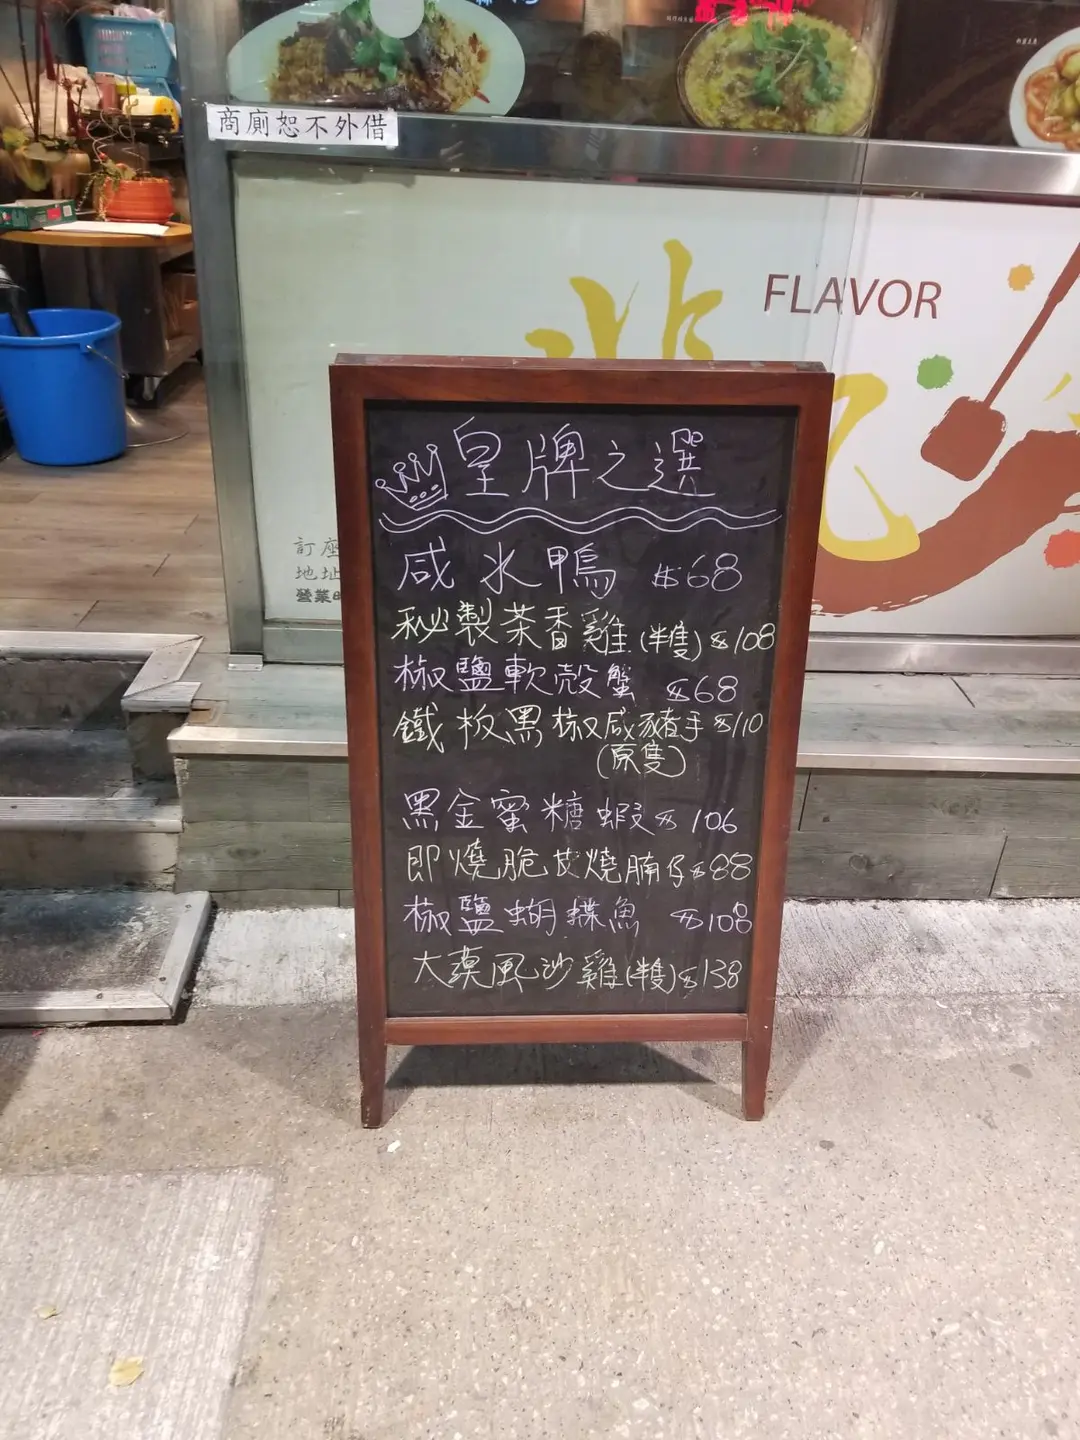 商廁恕不外借
FLAVOR
訂座
地址
營業時
皇牌之選
咸水鴨 $68
秘製茶香雞(半隻) $108
椒鹽軟殼蟹 $68
鐵板黑椒咸豬手 $110
(原隻)
黑金蜜糖蝦 $106
即燒脆皮燒腩仔 $88
椒鹽蝴蝶魚 $108
大漠風沙雞(半隻) $138